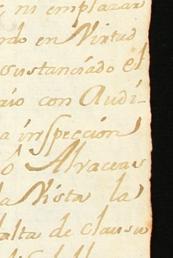 ni emplazar
rdo en Virtud
sustanciado el
aio con Audi-
a inspeccion
ò Alvaceas
la Vista la
alta de Clausu